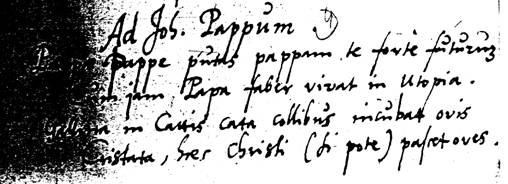 Ad Joh. Pappum
Pappe putas pappam te forte futurum
jam Papa faber vivat in Utopia.
in Cattis cata collibus incubat ovis
Cristata, haec Christi (si pote) pascet oves.